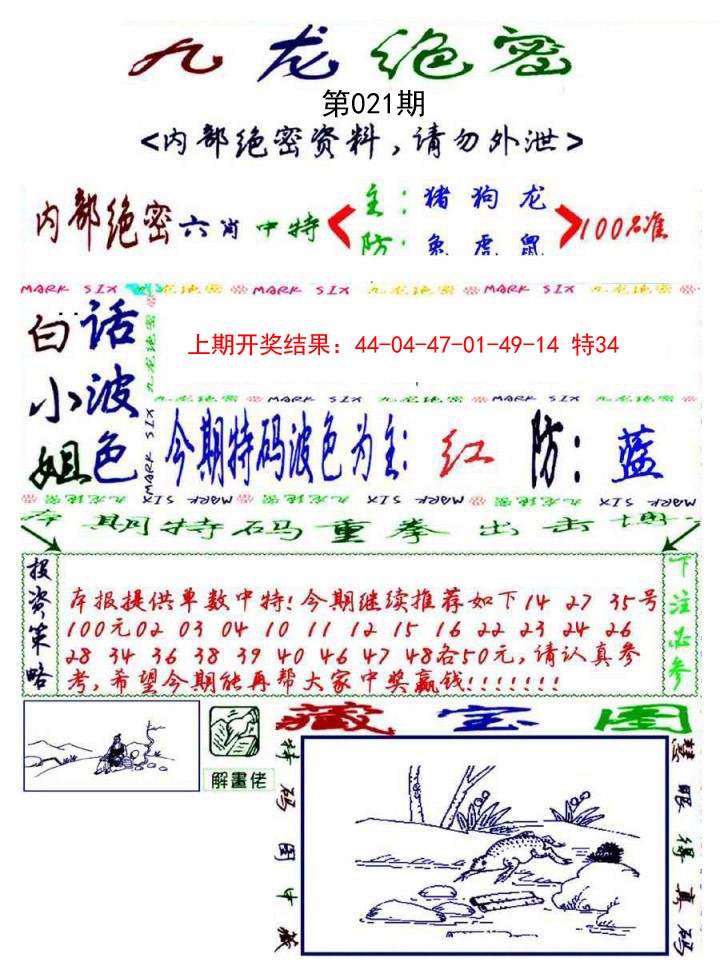 九龙绝密
第021期
<内部绝密资料,请勿外泄>
内部绝密六肖中特
主:猪狗龙
防:兔虎鼠
100%准
MARK SIX 九龙绝密 MARK SIX 九龙绝密 MARK SIX 九龙绝密
白话
小波
姐色
九龙绝密
MARK SIX
上期开奖结果：44-04-47-01-49-14 特34
九龙绝密 MARK SIX 九龙绝密 MARK SIX 九龙绝密
今期特码波色为主:红 防:蓝
九龙绝密 MARK SIX 九龙绝密 MARK SIX 九龙绝密 MARK SIX
本期特码重拳出击
投资策略
本报提供单数中特!今期继续推荐如下14 27 35号
100元02 03 04 10 11 12 15 16 22 23 24 26
28 34 36 38 39 40 46 47 48各50元,请认真参
考,希望今期能再帮大家中奖赢钱!!!!!!!
下注必参
解畫佬
藏宝图
特码图中藏
慧眼得真码